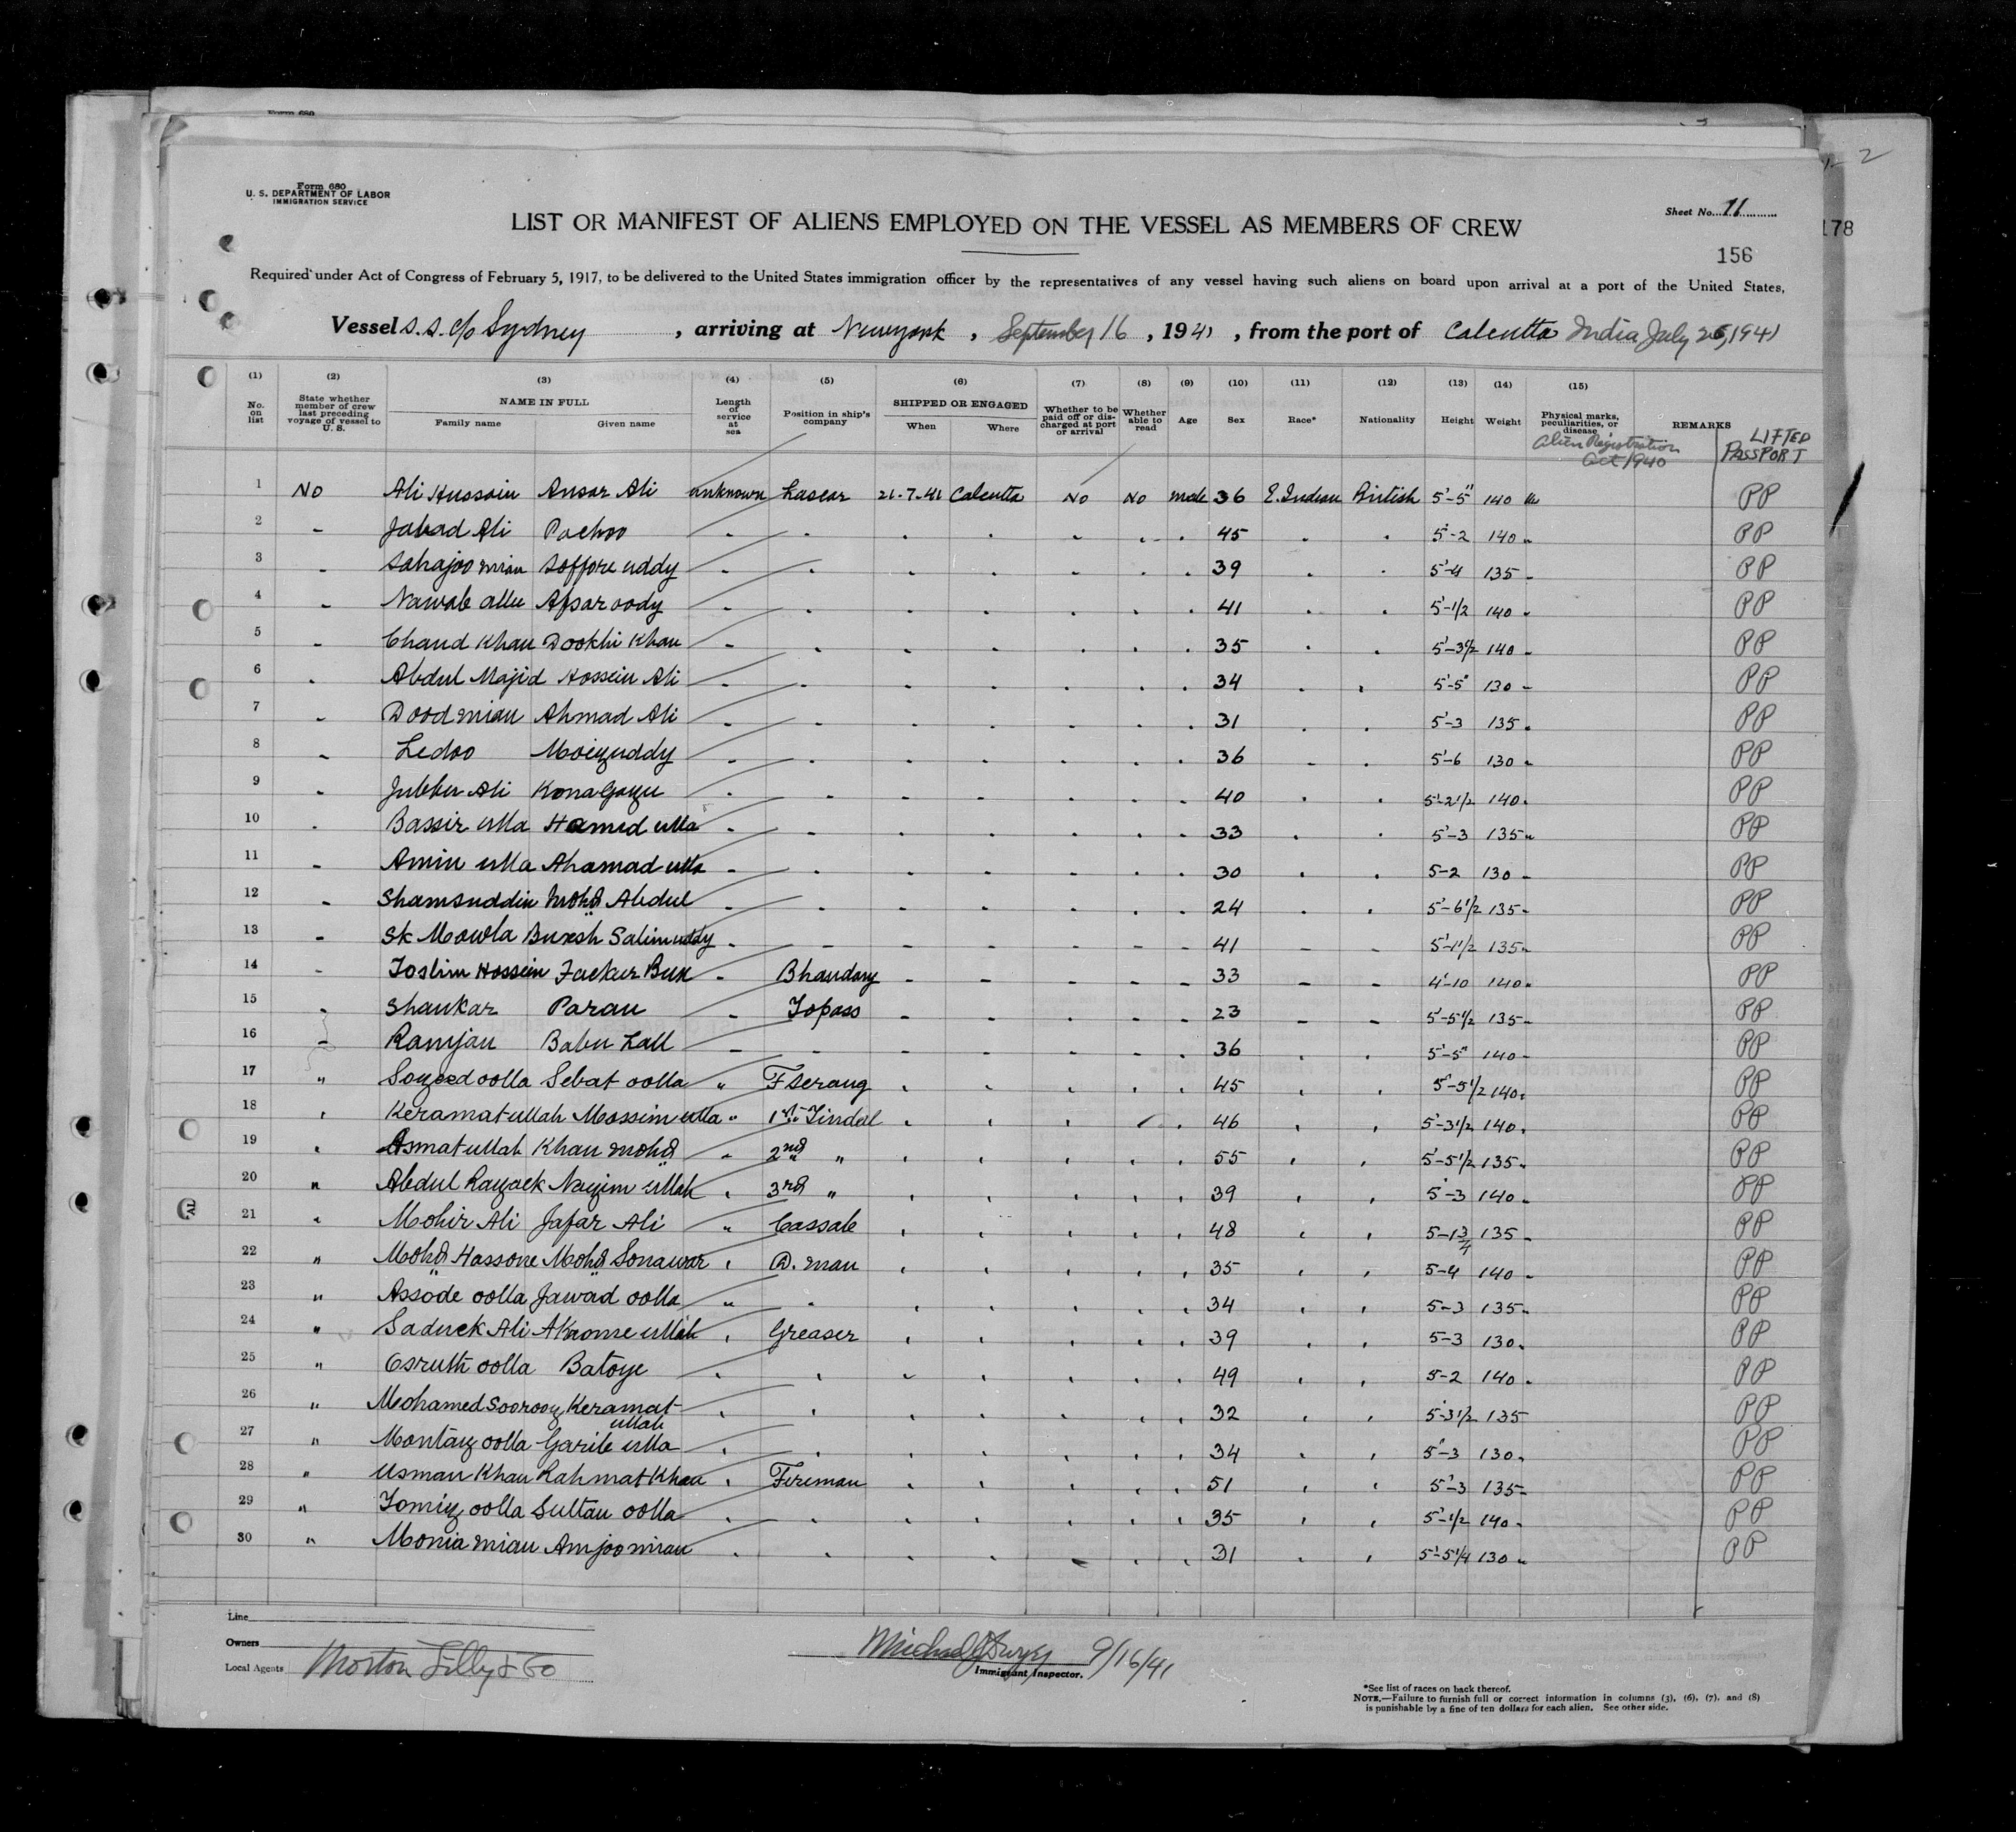 Form 680
U. S. DEPARTMENT OF LABOR
IMMIGRATION SERVICE
Sheet No. 11
2
178
156
LIST OR MANIFEST OF ALIENS EMPLOYED ON THE VESSEL AS MEMBERS OF CREW
Required under Act of Congress of February 5, 1917, to be delivered to the United States immigration officer by the representatives of any vessel having such aliens on board upon arrival at a port of the United States,
Vessel S.S. C/o Sydney, arriving at Newyork, September 16, 1941, from the port of Calcutta India July 26, 1941
(1) (2) (3) (4) (5) (6) (7) (8) (9) (10) (11) (12) (13) (14) (15)
No. on list
State whether member of crew last preceding voyage of vessel to U. S.
NAME IN FULL
Family name Given name
Length of service at sea
Position in ship's company
SHIPPED OR ENGAGED
When Where
Whether to be paid off or discharged at port or arrival
Whether able to read
Age
Sex
Race*
Nationality
Height
Weight
Physical marks, peculiarities, or disease
Alien Registration Act 1940
REMARKS
LIFTED PASSPORT
1 No Ali Hussain Ansar Ali unknown Lascar 21-7-41 Calcutta No No male 36 E. Indian British 5'-5" 140 PP
2 - Jabad Ali Pachoo 45 5'-2 140 PP
3 - Sahajoo mian Soffore uddy 39 5'-4 135 PP
4 - Nawab allu Afsar oody 41 5'-1/2 140 PP
5 - Chand Khan Dookhi Khan 35 5'-3 1/2 140 PP
6 - Abdul Majid Hossein Ali 34 5'-5" 130 PP
7 - Dood mian Ahmad Ali 31 5'-3 135 PP
8 - Ledoo Moizuddy 36 5'-6 130 PP
9 - Jubber Ali Kona Gazu 40 5'-2 1/2 140 PP
10 - Bassir ulla Hamid ulla 33 5'-3 135 PP
11 - Amin ulla Ahamad ulla 30 5-2 130 PP
12 - Shamsuddin Mohd Abdul 24 5'-6 1/2 135 PP
13 - Sk Mowla Buxsh Salimuddy 41 5'-1 1/2 135 PP
14 - Toslim Hossein Fackur Bux - Bhandary 33 4'-10 140 PP
15 - Shankar Paran - Topass 23 5'-5 1/2 135 PP
16 - Ramjan Babu Lall 36 5'-5" 140 PP
17 " Soyeed oolla Sebat oolla " F Serang 45 5'-5 1/2 140 PP
18 " Keramat ullah Mossim ulla " 1st Tindal 46 5'-3 1/2 140 PP
19 " Asmat ullah Khan mohd 2nd " 55 5'-5 1/2 135 PP
20 " Abdul Razack Nazim ullah 3rd " 39 5'-3 140 PP
21 " Mohir Ali Jafar Ali " Cassab 48 5-1 3/4 135 PP
22 " Mohd Hassone Mohd Sonawar D. man 35 5-4 140 PP
23 " Assode oolla Jawad oolla " 34 5-3 135 PP
24 " Saduck Ali Akrome ullah Greaser 39 5-3 130 PP
25 " Osruth oolla Batoye 49 5-2 140 PP
26 " Mohamed Soorooz Keramat ullah 32 5'-3 1/2 135 PP
27 " Montaz oolla Garib ulla 34 5'-3 130 PP
28 " Usman Khan Rahmat Khan Fireman 51 5'-3 135 PP
29 " Tomiz oolla Sultan oolla 35 5'-1/2 140 PP
30 " Monia mian Amjoo mian 31 5'-5 1/4 130 PP
Line
Owners
Local Agents Norton Lilly & Co
9/16/41
Immigrant Inspector.
*See list of races on back thereof.
NOTE.—Failure to furnish full or correct information in columns (3), (6), (7), and (8)
is punishable by a fine of ten dollars for each alien. See other side.